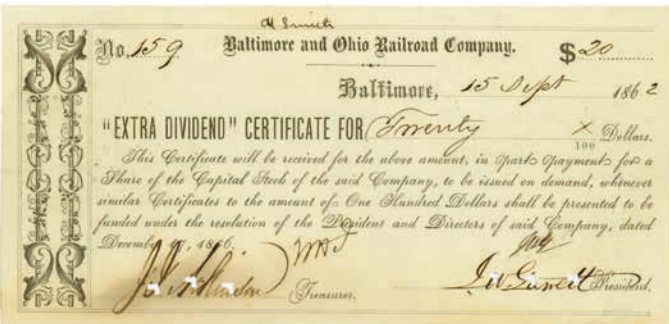 No. 159 Baltimore and Ohio Railroad Company. $20
Baltimore, 15 Sept 1862
"EXTRA DIVIDEND" CERTIFICATE FOR Twenty x/100 Dollars.
This Certificate will be received for the above amount, in part payment for a
Share of the Capital Stock of the said Company, to be issued on demand, whenever
similar Certificates to the amount of One Hundred Dollars shall be presented to be
funded under the resolution of the President and Directors of said Company, dated
December 17, 1856.
Treasurer. J W Garrett President.